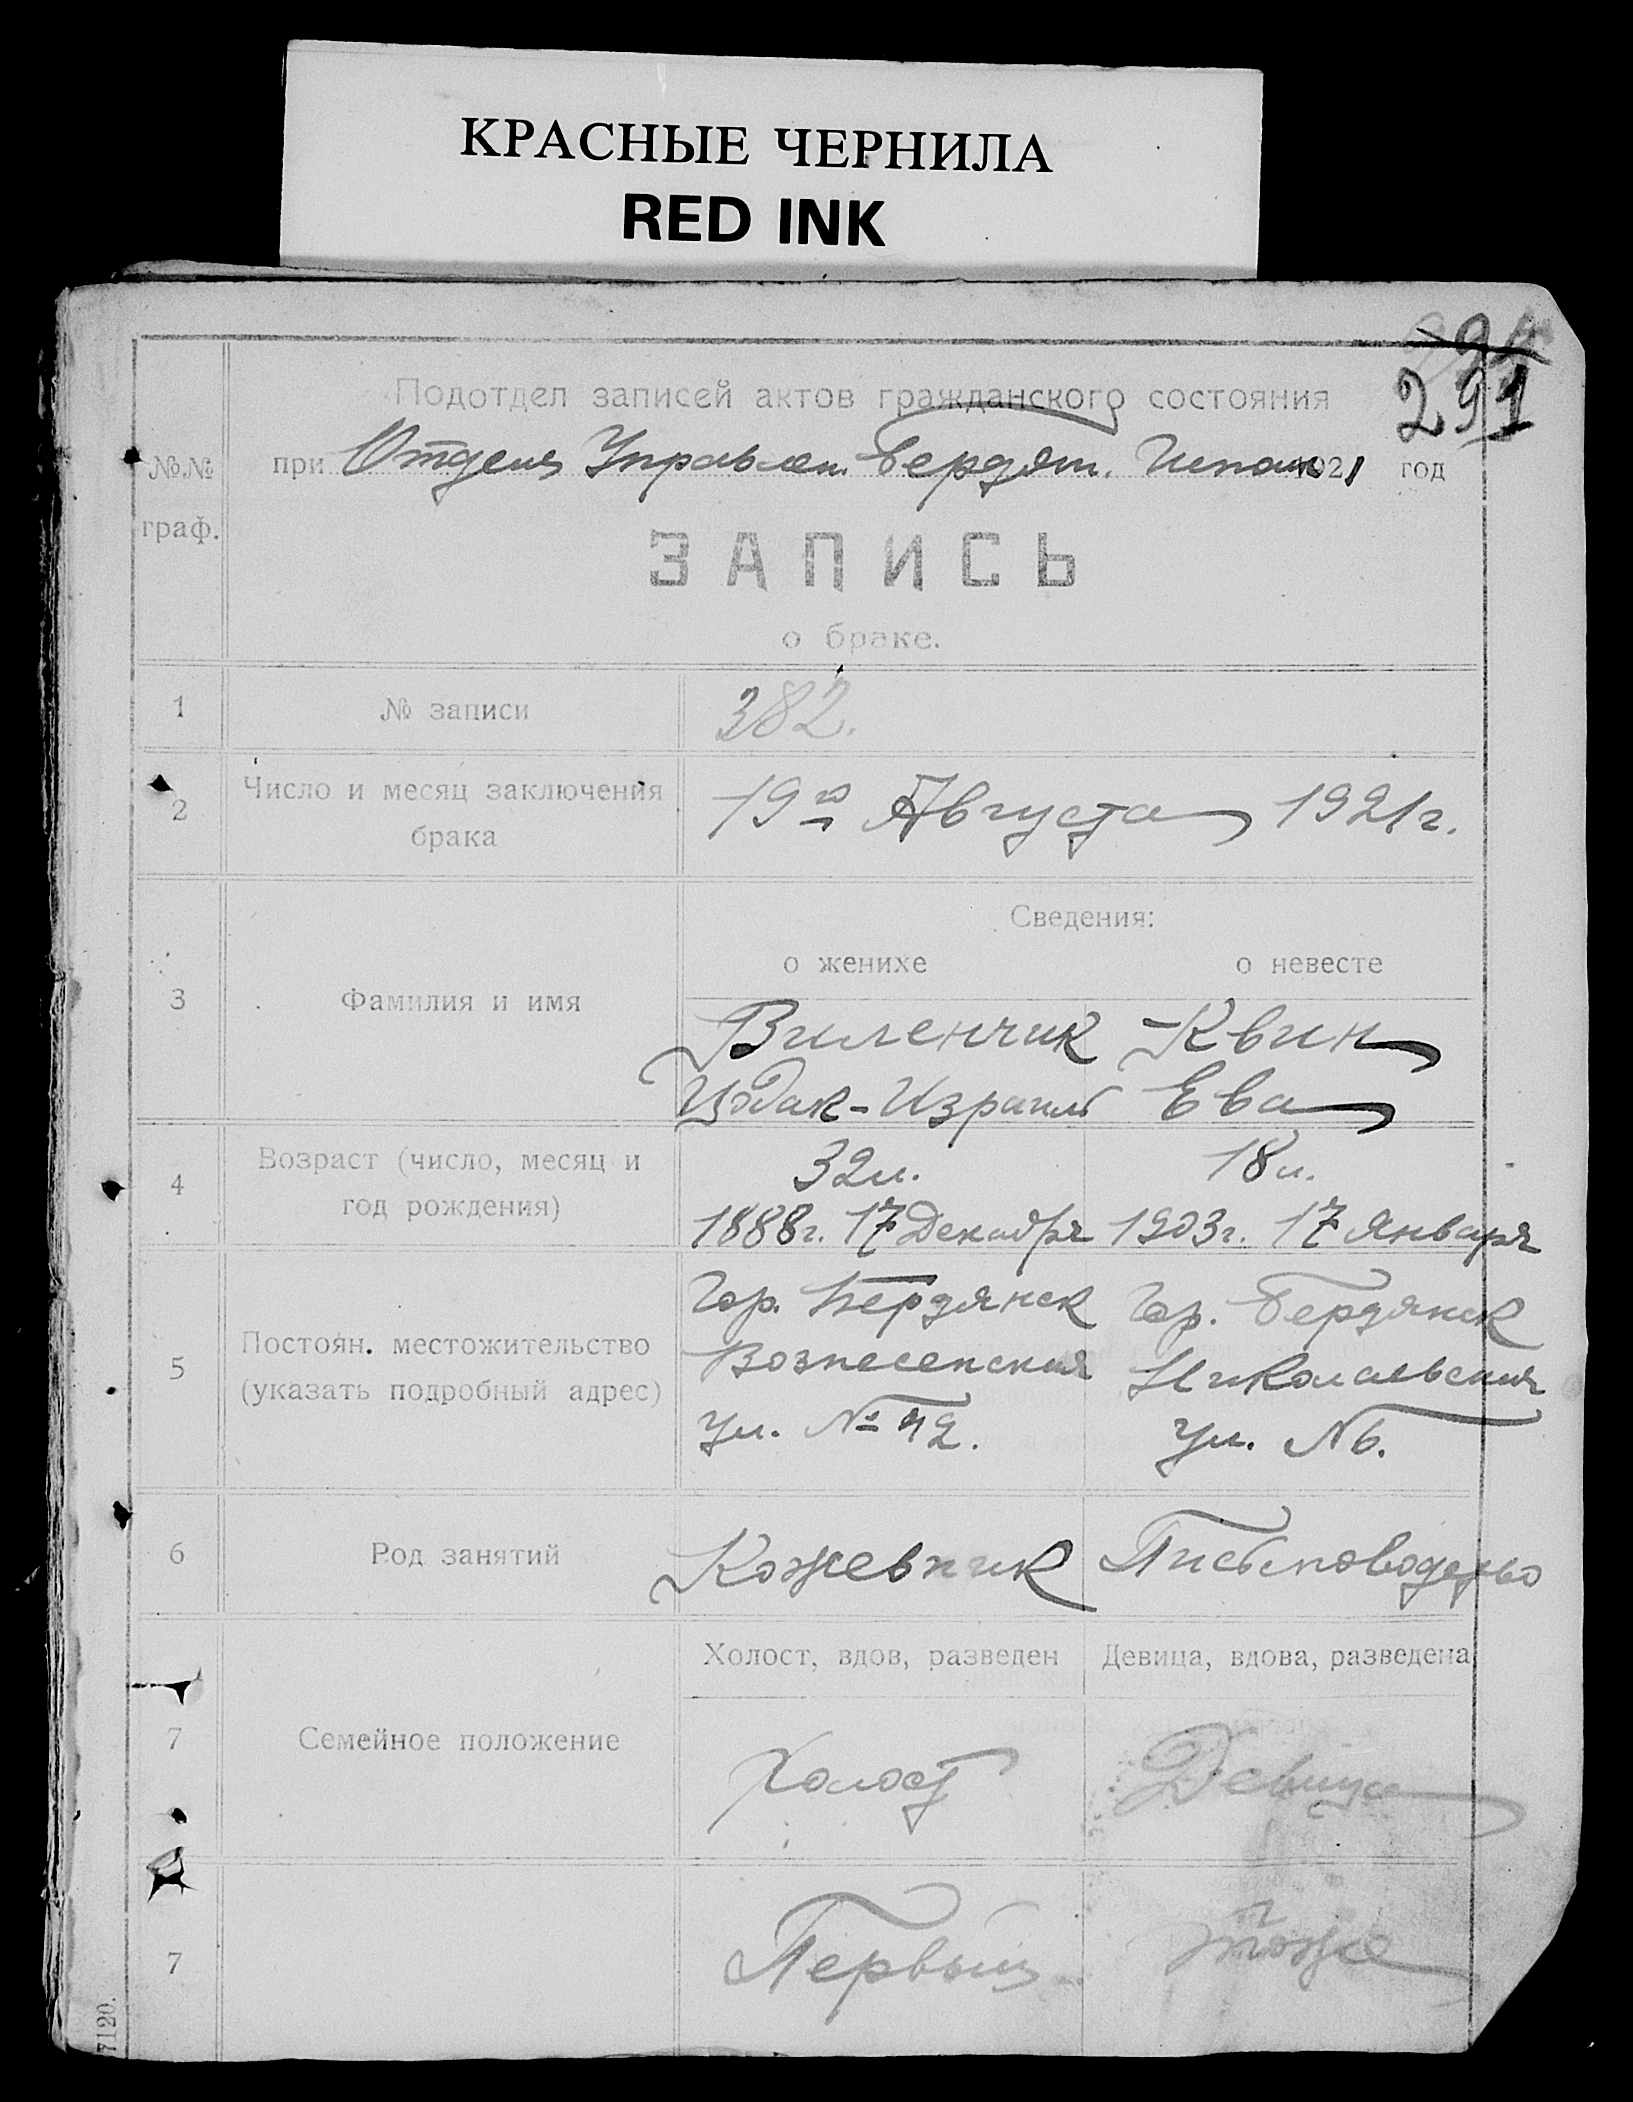 КРАСНЫЕ ЧЕРНИЛА
RED INK
291
Подотдел записей актов гражданского состояния
при Отделе Управлен. Бердян. 1921 год
№№ граф.
ЗАПИСЬ
о браке.
1 № записи 382.
2 Число и месяц заключения брака 19го Августа 1921 г.
Сведения:
о женихе о невесте
3 Фамилия и имя
Виленчик Квин
Ицхак-Израиль Ева
4 Возраст (число, месяц и год рождения)
32 л. 18 л.
1888 г. 17 Декабря 1903 г. 17 Января
5 Постоян. местожительство (указать подробный адрес)
Гор. Бердянск Гор. Бердянск
Вознесенская Николаевская
ул. № 42. ул. № 6.
6 Род занятий Кожевник Письмоводство
Холост, вдов, разведен Девица, вдова, разведена
7 Семейное положение Холост Девица
7 Первый тоже
7120.